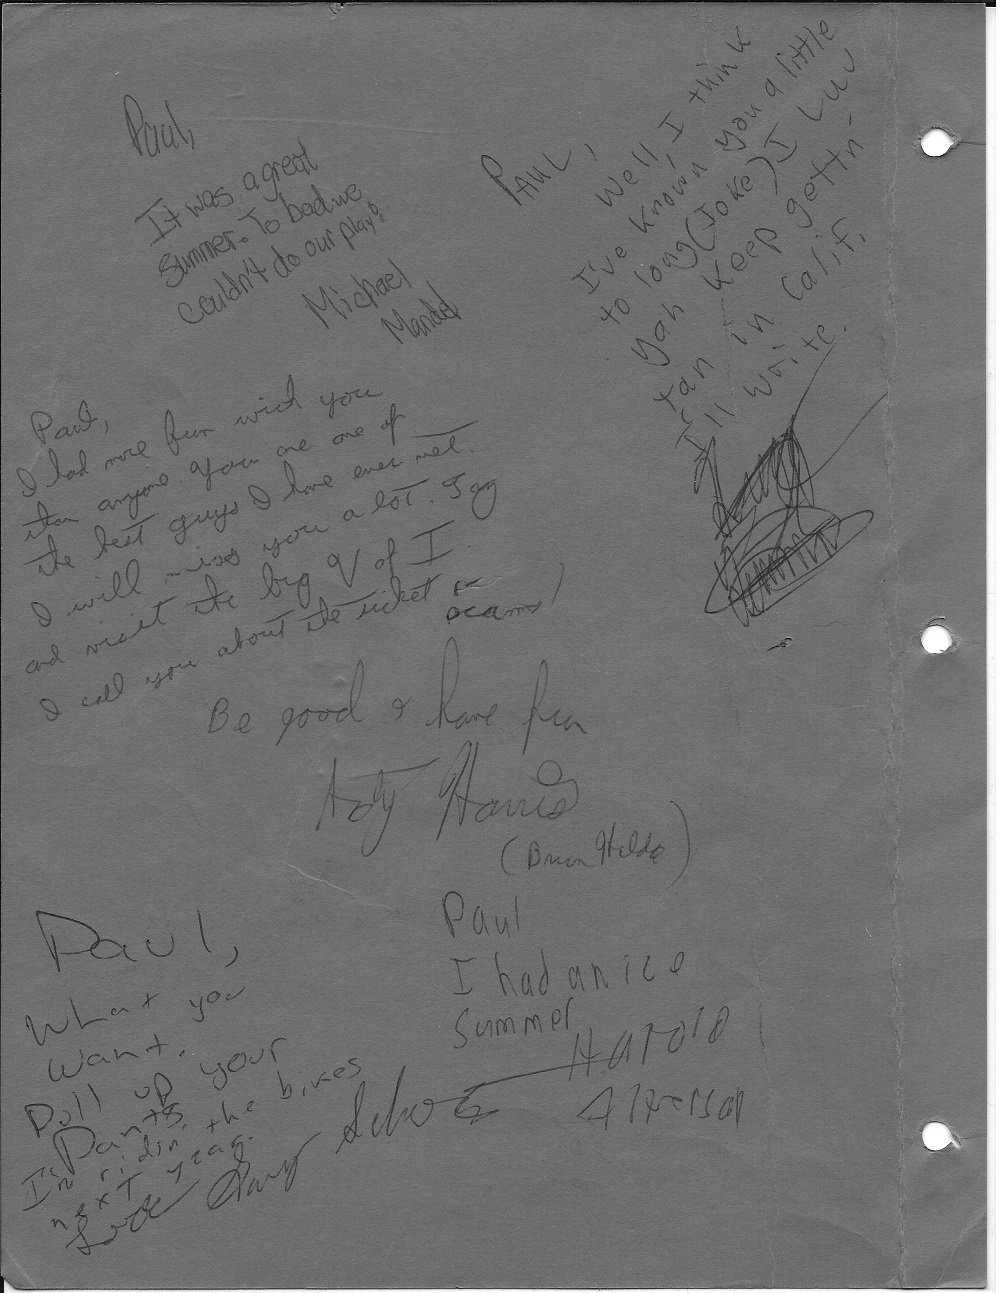 Paul,
It was a great
summer. To bad we
couldn't do our play!
Michael
Mandel
PAUL,
Well, I think
I've known you a little
to long (Joke) I Luv
yah keep gettn-
tan in Calif.
I'll write.
Paul,
I had more fun with you
than anyone. You are one of
the best guys I have ever met.
I will miss you a lot. I
and visit the big V of I
I call you about the ticket
Be good & have fun
Harris
(Brian
Paul
I had a nice
Summer
Harold
Paul,
What you
want.
Pull up your
Pants
I'm ridin the bikes
next year.
Love